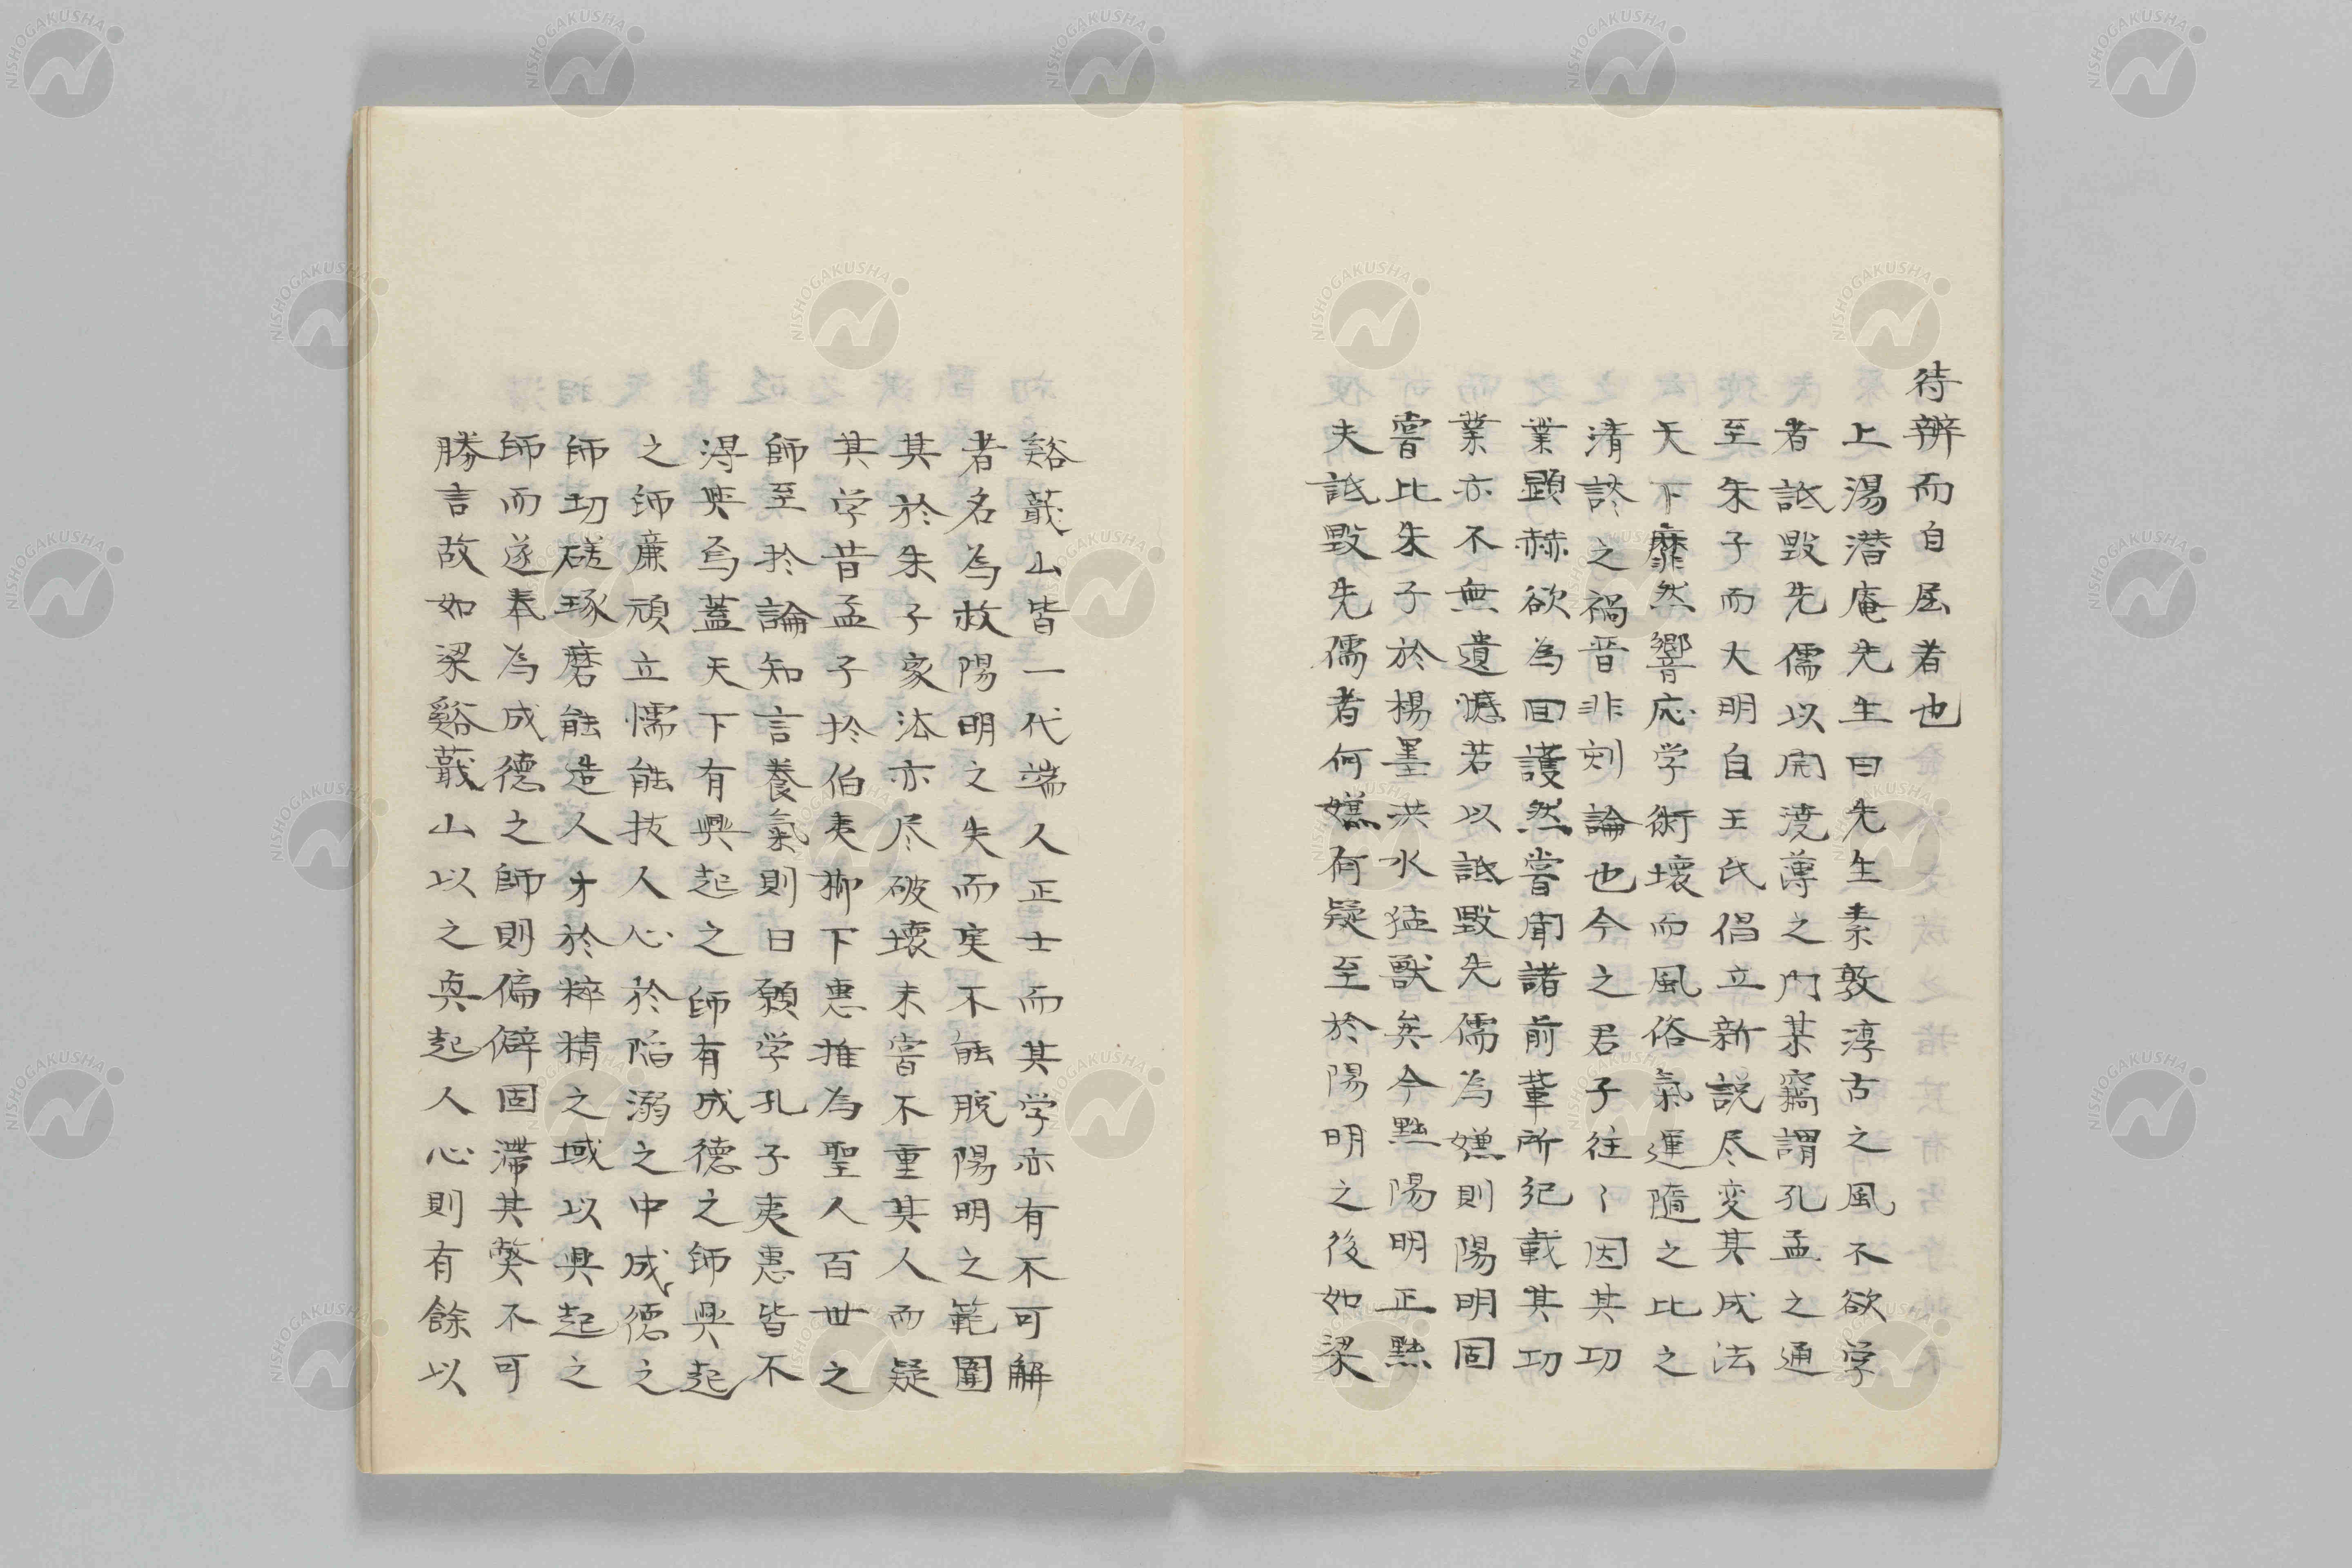 待辨而自屈者也
上湯潜庵先生曰先生素敦淳古之風不欲学
者詆毀先儒以開澆薄之門某竊謂孔孟之通
至朱子而大明自王氏倡立新説尽変其成法
天下靡然響応学術壞而風俗氣運隨之比之
清談之禍晋非刻論也今之君子往〻因其功
業顕赫欲為回護然嘗聞諸前輩所紀載其功
業亦不無遺憾若以詆毀先儒為嫌則陽明固
嘗比朱子於楊墨洪水猛獸矣今黜陽明正黜
夫詆毀先儒者何嫌有疑至於陽明之後如梁
谿蕺山皆一代端人正士而其学亦有不可解
者名為救陽明之失而実不能脱陽明之範圍
其於朱子家法亦尽破壞未嘗不重其人而疑
其学昔孟子於伯夷柳下惠推為聖人百世之
師至於論知言養氣則曰願学孔子夷惠皆不
得與焉蓋天下有興起之師有成德之師興起
之師廉頑立懦能抜人心於陷溺之中成德之
師切磋琢磨能造人才於粹精之域以興起之
師而遂奉為成德之師則偏僻固滯其獘不可
勝言故如梁谿蕺山以之興起人心則有餘以
NISHOGAKUSHA